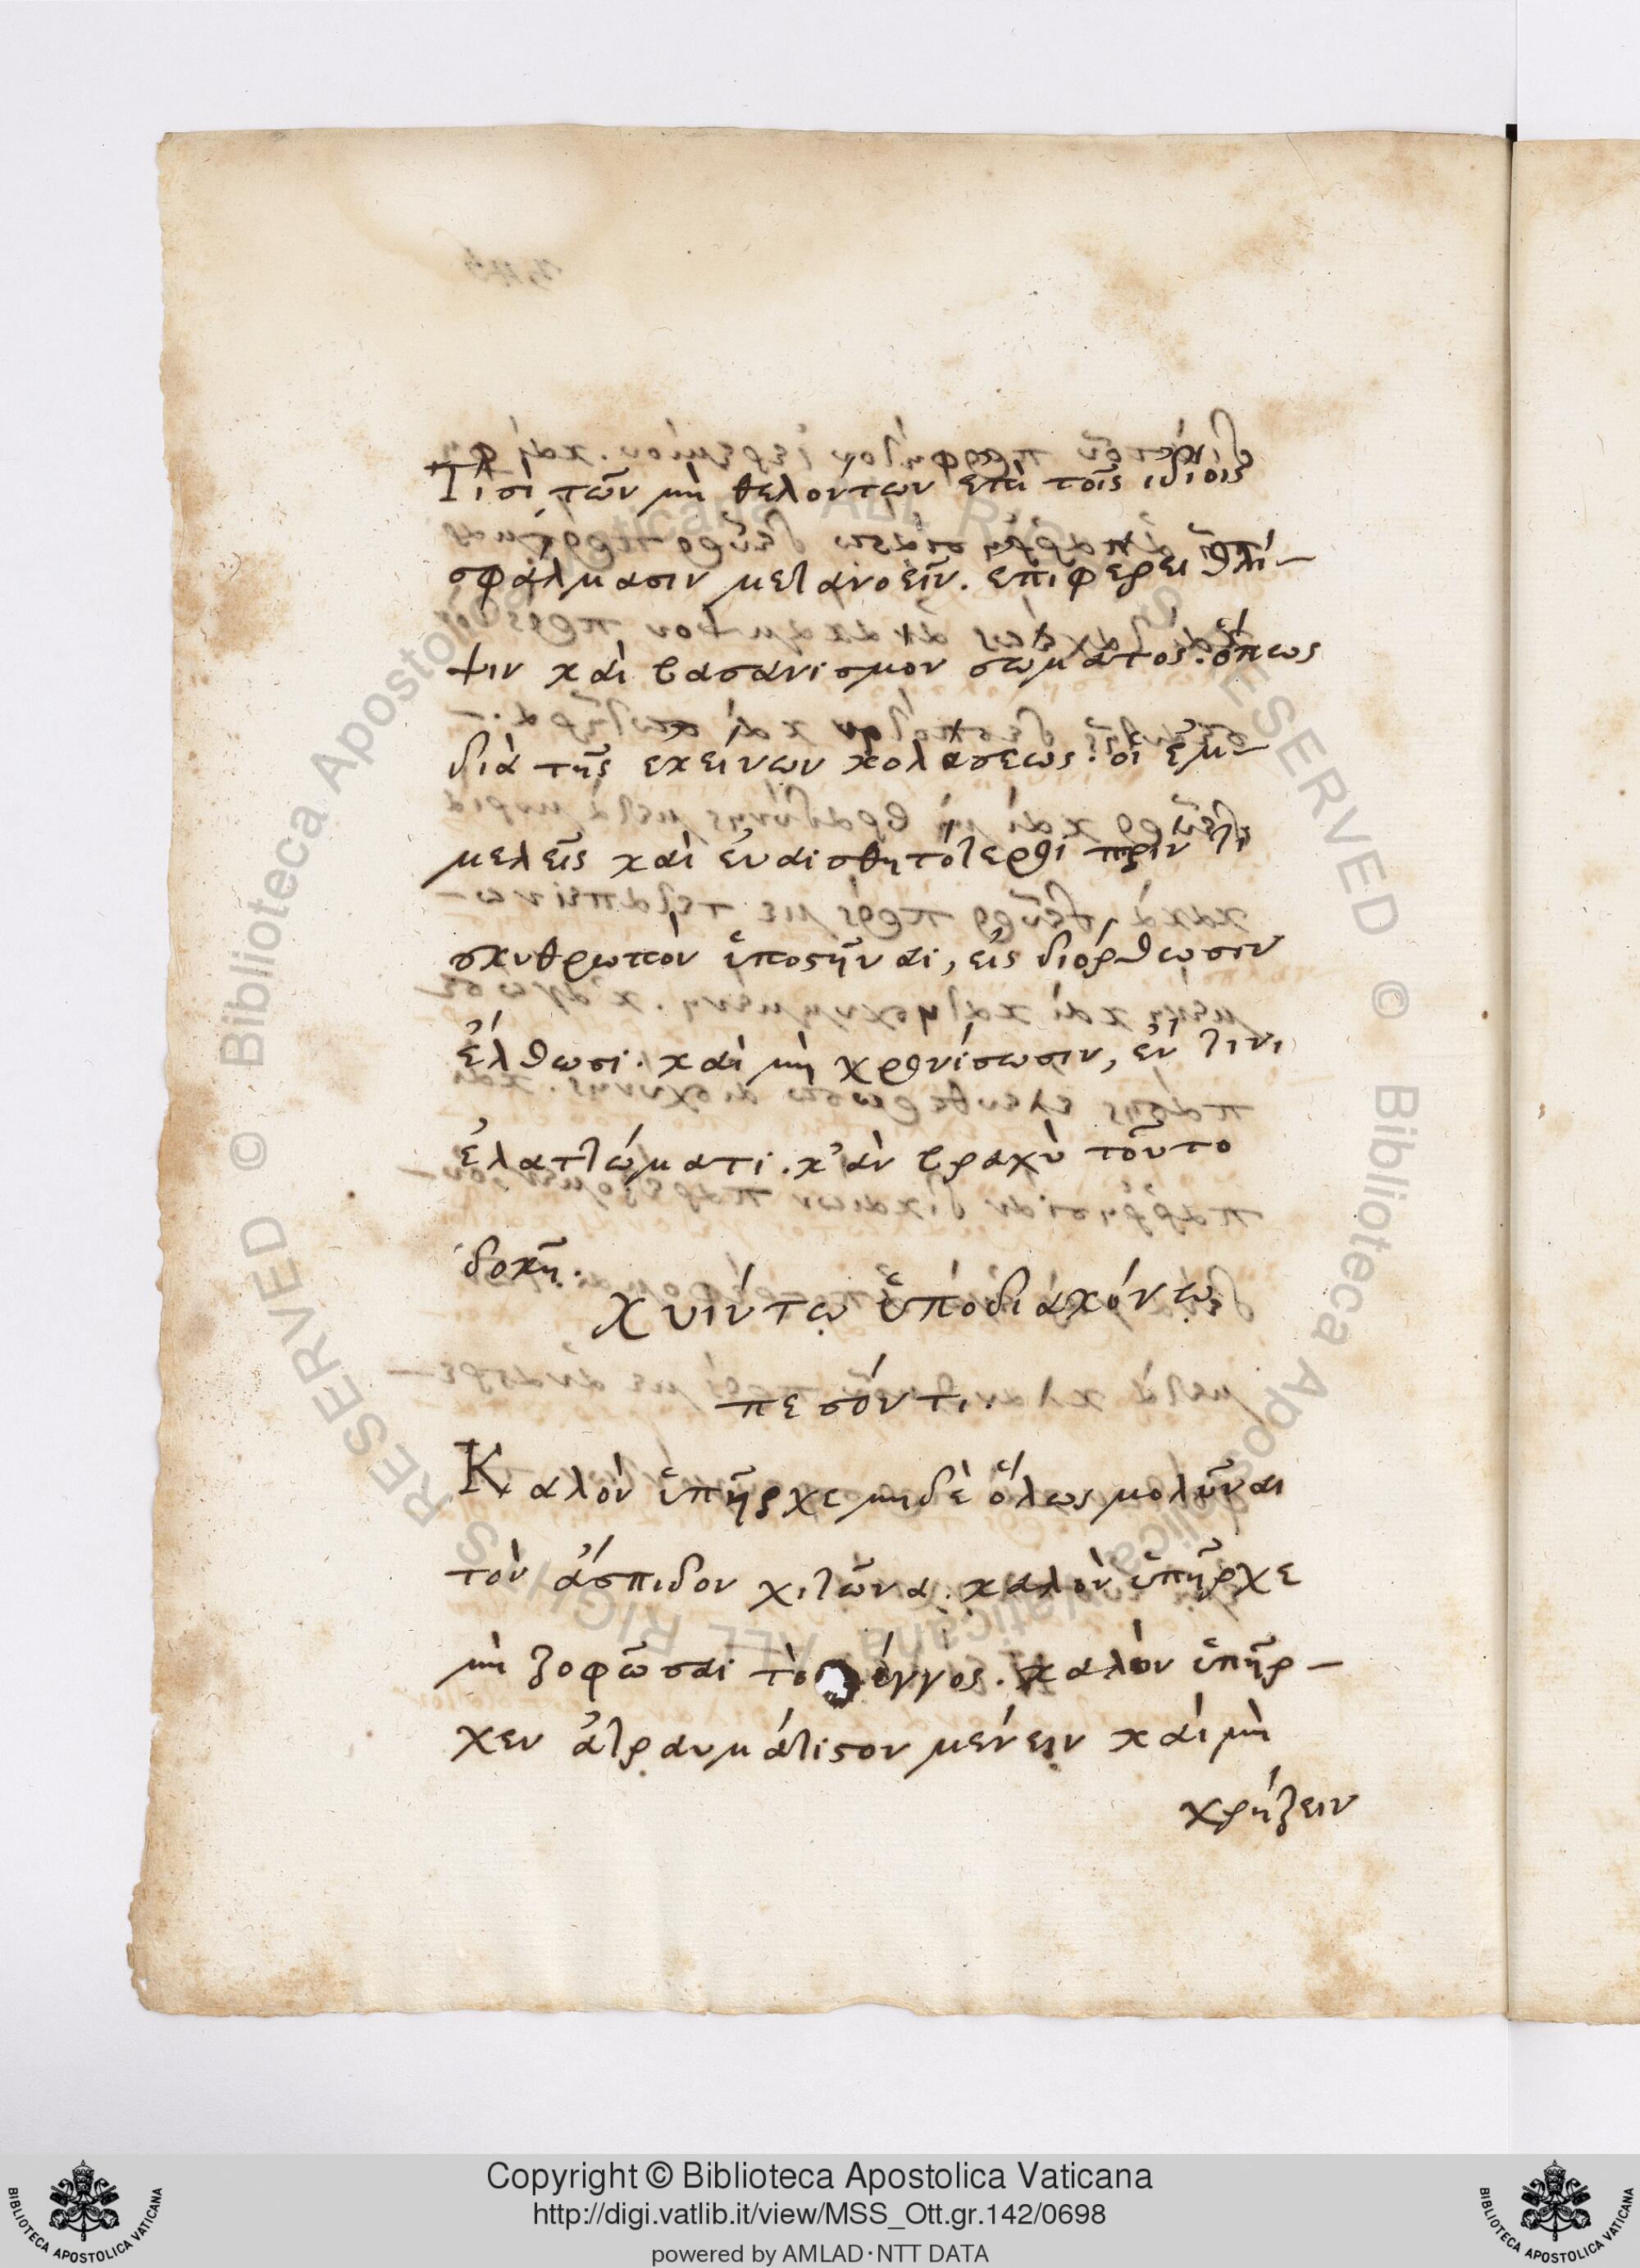 Τισὶ τῶν μὴ θελόντων ἐπὶ τοῖς ἰδίοις
σφάλμασιν μετανοεῖν. ἐπιφέρει θλί-
ψιν καὶ βασανισμὸν σώματος. ὅπως
διὰ τῆς ἐκείνων κολάσεως. οἱ ἐμ-
μελεῖς καὶ εὐαισθητότεροι πρίν τι
σκυθρωπὸν ὑποστῆναι, εἰς διόρθωσιν
ἔλθωσι. καὶ μὴ χρονίσωσιν, ἔν τινι
ἐλαττώματι. κἂν βραχὺ τοῦτο
δοκῆ.
Κυίντῳ ὑποδιακόνῳ
πεσόντι.
Καλὸν ὑπῆρχε μηδὲ ὅλως μολῦναι
τὸν ἄσπιδον χιτῶνα. καλὸν ὑπῆρχε
μὴ ζοφῶσαι τὸ έγγος. καλὸν ὑπῆρ-
χεν ἀτραυμάτιστον μένειν καὶ μὴ
χρήζειν
Copyright © Biblioteca Apostolica Vaticana
http://digi.vatlib.it/view/MSS_Ott.gr.142/0698
powered by AMLAD·NTT DATA
BIBLIOTECA APOSTOLICA VATICANA
BIBLIOTECA APOSTOLICA VATICANA